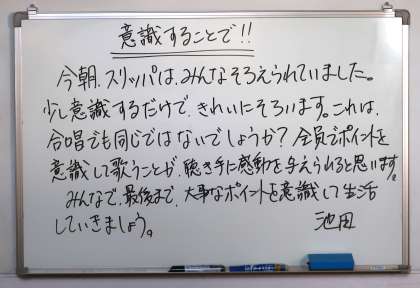 意識することで!!
今朝、スリッパは、みんなそろえられていました。
少し意識するだけで、きれいにそろいます。これは、
合唱でも同じではないでしょうか?全員でポイントを
意識して歌うことが、聴き手に感動を与えられると思います。
みんなで、最後まで、大事なポイントを意識して生活
していきましょう。
池田